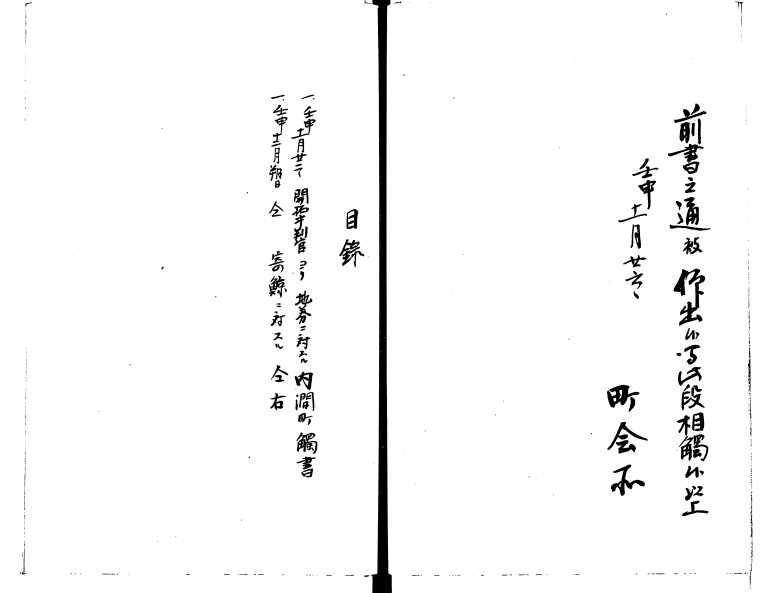 前書之通被 仰出候間此段相觸候以上
壬申十一月廿六日
町会所
目錄
一、壬申十一月廿六日 開拓判官ヨリ地券ニ対スル内澗町觸書
一、壬申十二月朔日 仝 寄鯨ニ対スル仝右